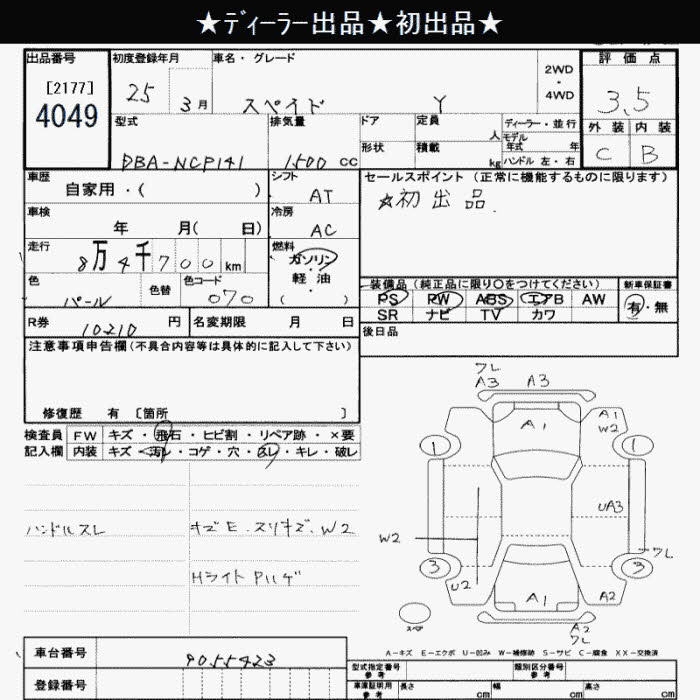 ★ディーラー出品★初出品★
出品番号 初度登録年月 車名・グレード 2WD・4WD 評価点
[2177]
4049
25 3月 スペイド Y 3.5
型式 排気量 ドア 定員 人 ディーラー・並行 外装 内装
モデル年式 年
DBA-NCP141 1500 CC 形状 積載 kg ハンドル 左・右 C B
車歴 シフト セールスポイント(正常に機能するものに限ります)
自家用・( ) AT ☆初出品
車検 冷房
年 月( 日) AC
走行 燃料
8万4千700km ガソリン・軽油( )
色 色替 色コード 装備品(純正品に限り○をつけてください) 新車保証書
パール 070 PS PW ABS エアB AW 有・無
SR ナビ TV カワ
R券 10210円 名変期限 月 日 後日品
注意事項申告欄(不具合内容等は具体的に記入して下さい)
修復歴 有 〔箇所 〕
検査員 FW キズ・飛石・ヒビ割・リペア跡・×要
記入欄 内装 キズ・汚レ・コゲ・穴・スレ・キレ・破レ
ハンドルスレ キズE.スリキズ.W2
Hライト
ワレ
A3 A3
A1 A1
W2
1 1
UA3
W2
ワレ
3 3
U2 A1 A2
スペア A2
ワレ
A-キズ E-エクボ U-凹み W-補修跡 S-サビ C-腐食 XX-交換済
車台番号 9055423 型式指定番号 参考 類別区分番号 参考
登録番号 車庫証明用 参考 長さ cm 幅 cm 高さ cm